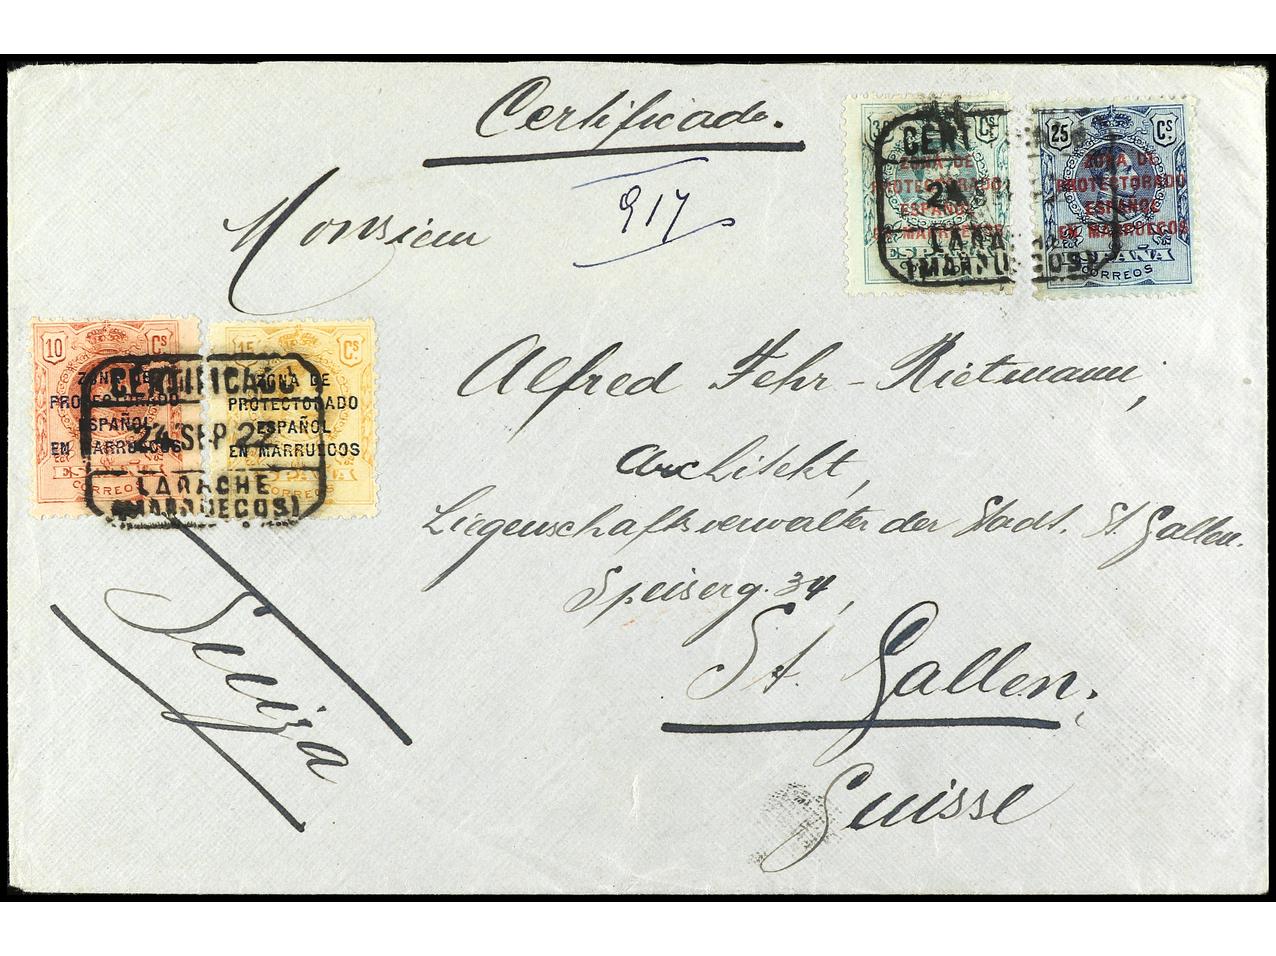 Certificado.
Monsieur
917
30 Cs
ZONA DE
PROTECTORADO
ESPAÑOL
EN MARRUECOS
ESPAÑA
25 Cs
ZONA DE
PROTECTORADO
ESPAÑOL
EN MARRUECOS
ESPAÑA
CORREOS
LARACHE
(MARRUECOS)
10 Cs
ZONA DE
PROTECTORADO
ESPAÑOL
EN MARRUECOS
ESPAÑA
CORREOS
15 Cs
ZONA DE
PROTECTORADO
ESPAÑOL
EN MARRUECOS
CORREOS
CERTIFICADO
24 SEP 22
LARACHE
(MARRUECOS)
Alfred Fehr-Rietmann,
Architekt,
Liegenschaftsverwalter der Stadt. St. Gallen.
Speiserg. 34,
St. Gallen.
Suisse
Suiza